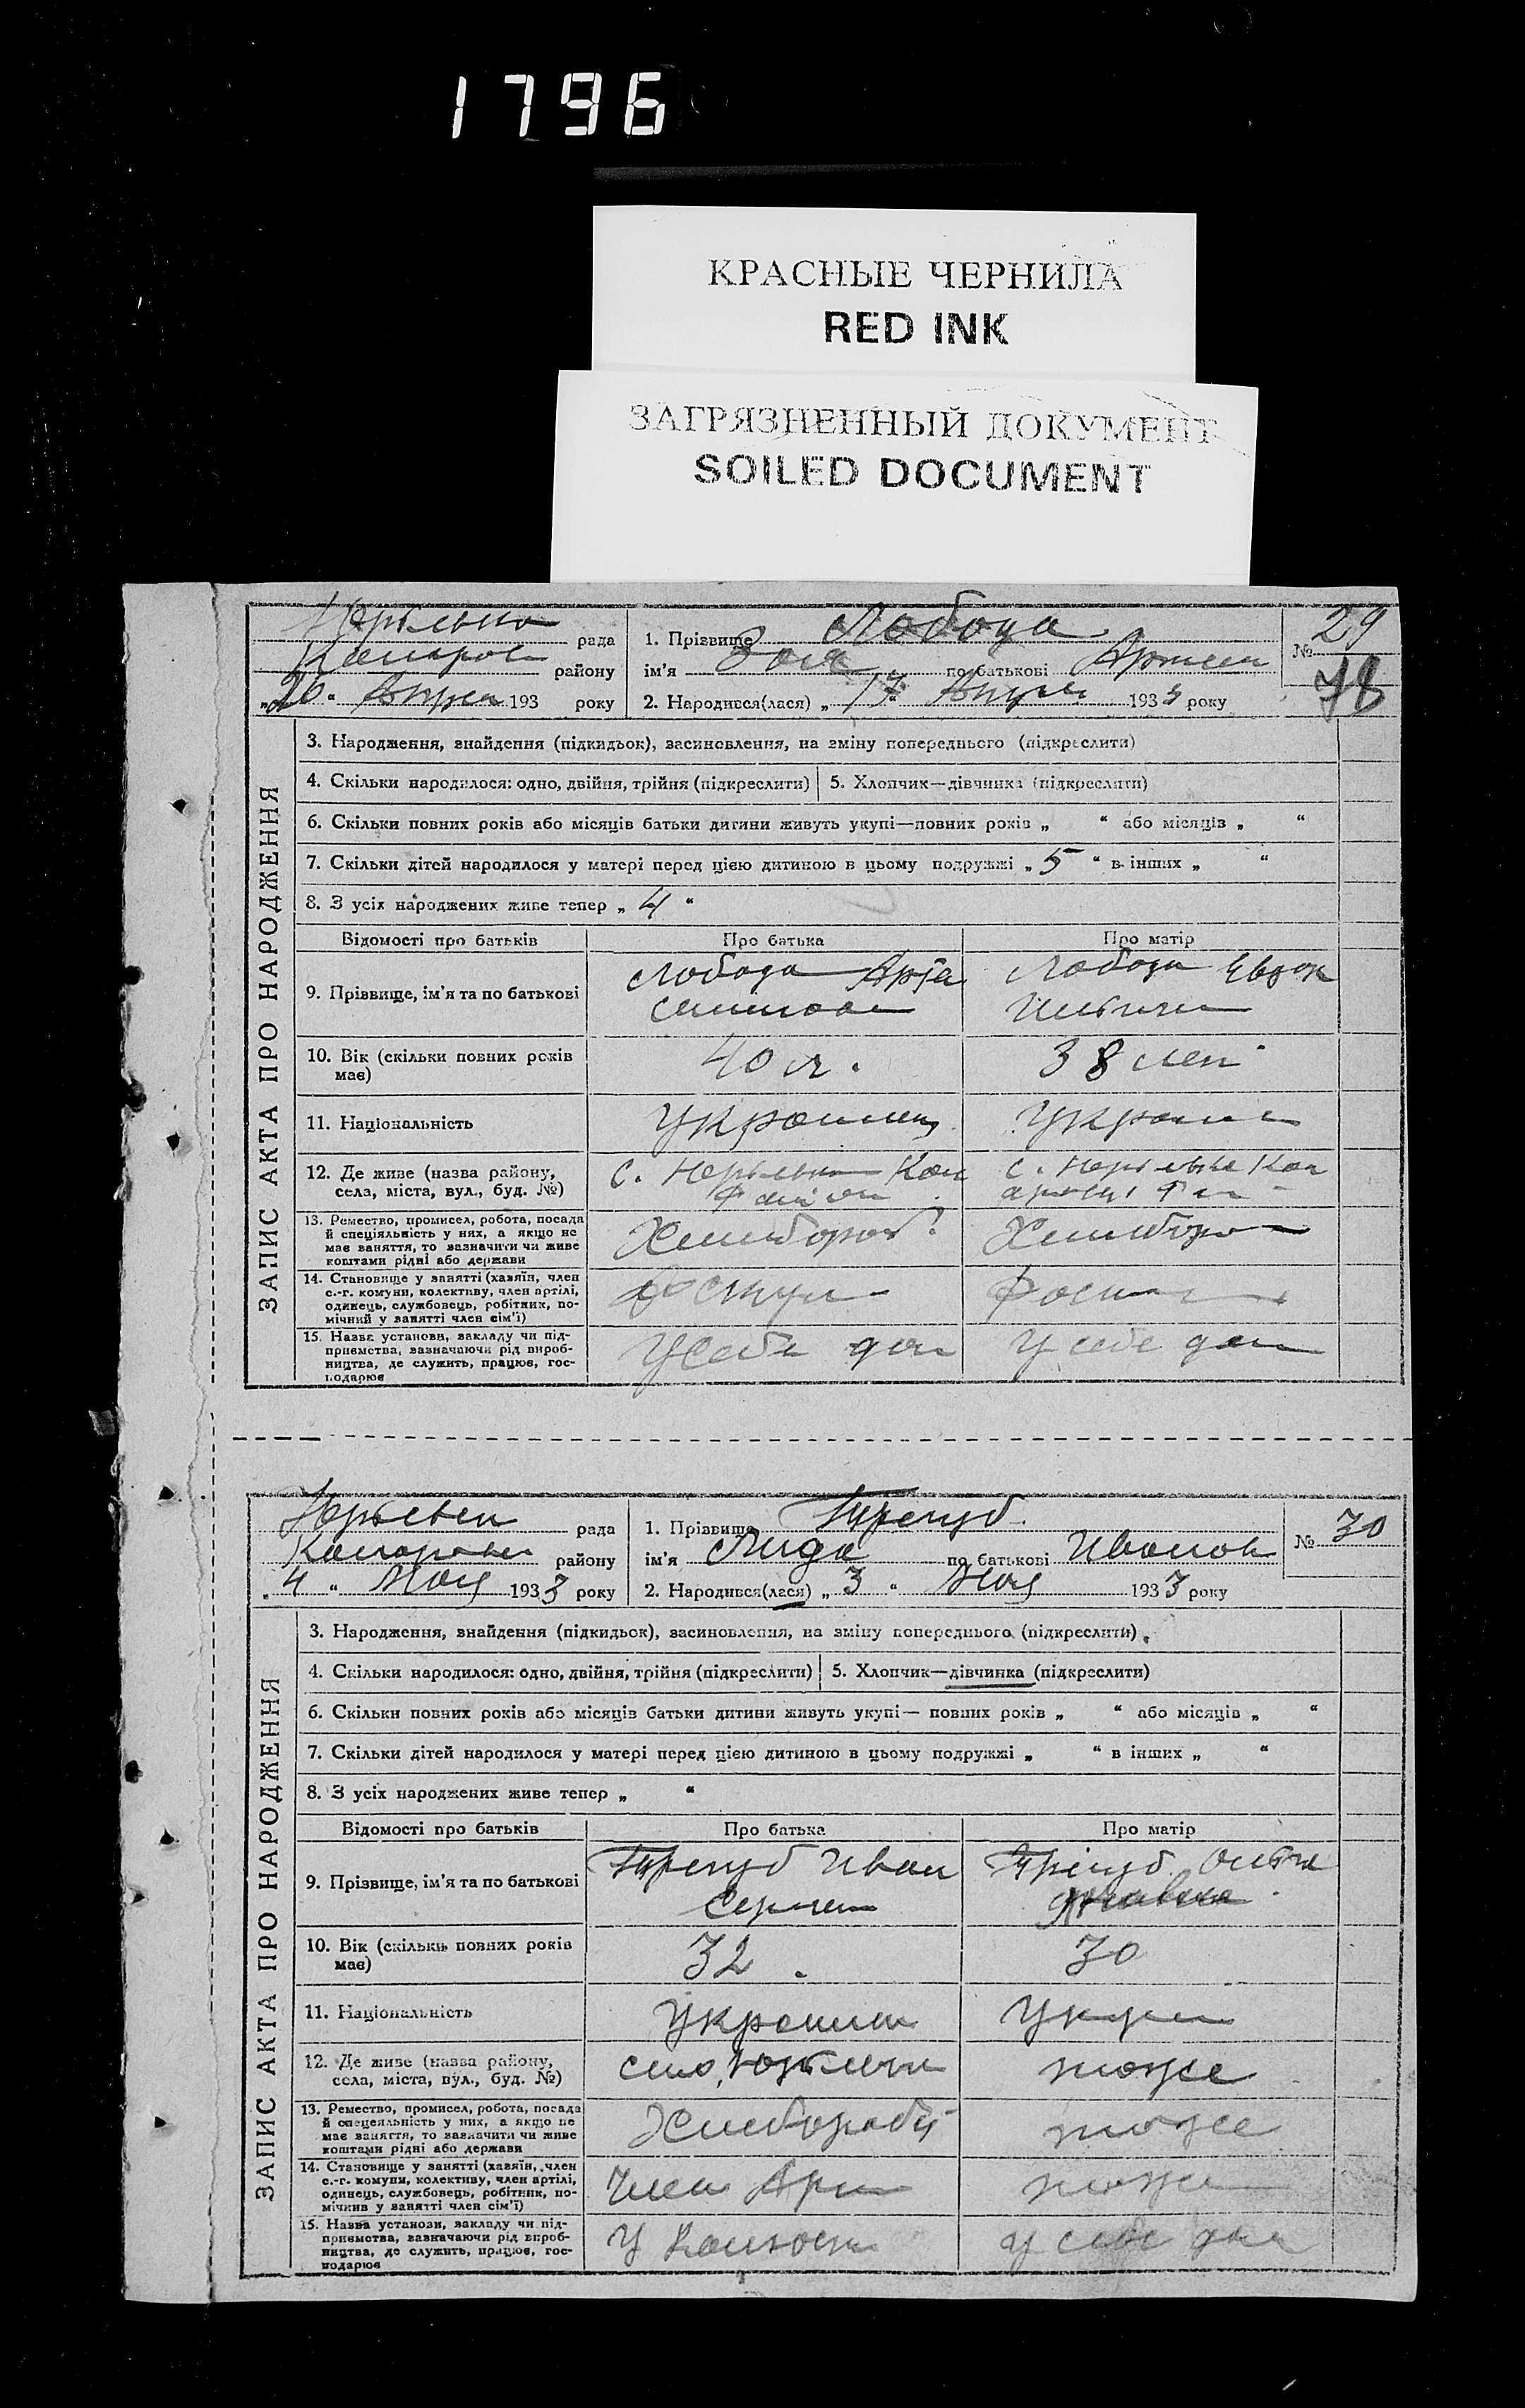 1796
КРАСНЫЕ ЧЕРНИЛА
RED INK
ЗАГРЯЗНЕННЫЙ ДОКУМЕНТ
SOILED DOCUMENT
рада
району
"26" 193 року
1. Прізвище Лобода
ім'я Зоя по батькові Артем
2. Народився(лася) „17" 1933 року
№ 29
78
ЗАПИС АКТА ПРО НАРОДЖЕННЯ
3. Народження, знайдення (підкидьок), засиновлення, на зміну попереднього (підкреслити)
4. Скільки народилося: одно, двійня, трійня (підкреслити) 5. Хлопчик—дівчинка (підкреслити)
6. Скільки повних років або місяців батьки дитини живуть укупі—повних років „ “ або місяців „ “
7. Скільки дітей народилося у матері перед цією дитиною в цьому подружжі „ 5 “ в інших „ “
8. З усіх народжених живе тепер „ 4 “
Відомості про батьків Про батька Про матір
9. Прізвище, ім'я та по батькові Лобода Лобода
10. Вік (скільки повних років має) 40 л. 38 лет
11. Національність Украинец Украин
12. Де живе (назва району, села, міста, вул., буд. №) с. с.
13. Ремество, промисел, робота, посада й спеціяльність у них, а якщо не має заняття, то зазначити чи живе коштами рідні або держави Хлибороб
14. Становище у занятті (хазяїн, член с.-г. комуни, колективу, член артілі, одинець, службовець, робітник, помічний у занятті член сім'ї)
15. Назва установи, закладу чи підприємства, зазначаючи рід виробництва, де служить, працює, господарює У себе дом У себе дом
рада
району
„4“ Мая 1933 року
1. Прізвище Трегуб
ім'я Лида по батькові Иванов
2. Народився(лася) „3“ Мая 1933 року
№ 30
ЗАПИС АКТА ПРО НАРОДЖЕННЯ
3. Народження, знайдення (підкидьок), засиновлення, на зміну попереднього (підкреслити)
4. Скільки народилося: одно, двійня, трійня (підкреслити) 5. Хлопчик—дівчинка (підкреслити)
6. Скільки повних років або місяців батьки дитини живуть укупі— повних років „ “ або місяців „ “
7. Скільки дітей народилося у матері перед цією дитиною в цьому подружжі „ “ в інших „ “
8. З усіх народжених живе тепер „ “
Відомості про батьків Про батька Про матір
9. Прізвище, ім'я та по батькові Трегуб Иван Трігуб
10. Вік (скільки повних років має) 32. 30
11. Національність Украинец
12. Де живе (назва району, села, міста, вул., буд. №) тоже
13. Ремество, промисел, робота, посада й спецеяльність у них, а якщо не має заняття, то зазначити чи живе коштами рідні або держави тоже
14. Становище у занятті (хазяїн, член с.-г. комуни, колективу, член артілі, одинець, службовець, робітник, помічник у занятті член сім'ї) Член Арт тоже
15. Назва установи, закладу чи підприємства, зазначаючи рід виробництва, де служить, працює, господарює у себе дома